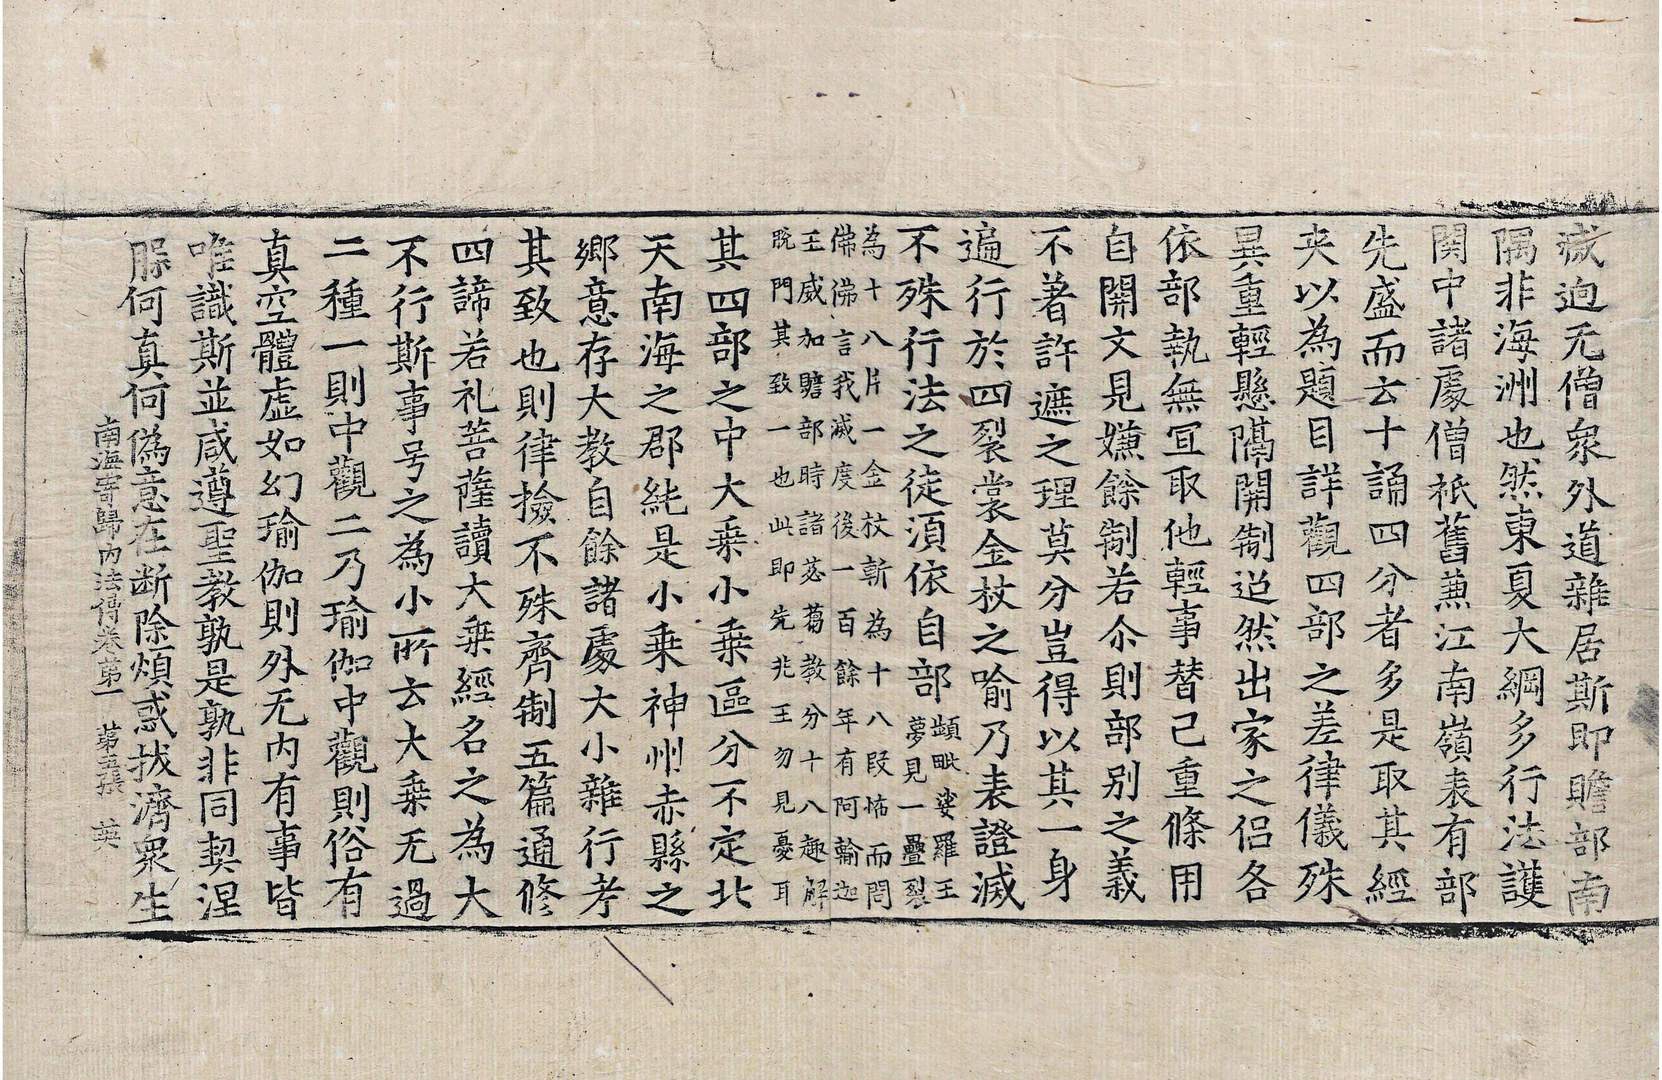 滅迫无僧衆外道雜居斯即贍部南
隅非海洲也然東夏大綱多行法護
関中諸處僧祇舊兼江南嶺表有部
先盛而云十誦四分者多是取其經
夾以為題目詳觀四部之差律儀殊
異重輕懸隔開制迢然出家之侣各
依部執無冝取他輕事替己重條用
自開文見嫌餘制若尒則部别之義
不著許遮之理莫分豈得以其一身
遍行於四裂裳金杖之喻乃表證滅
不殊行法之徒湏依自部
頻毗娑羅王
夢見一疊裂
為十八片一金杖斬為十八段怖而問
佛佛言我滅度後一百餘年有阿輸迦
王威加贍部時諸苾蒭教分十八趣解
脫門其致一也此即先兆王勿見憂耳
其四部之中大乗小乗區分不定北
天南海之郡純是小乗神州赤縣之
鄉意存大教自餘諸處大小雜行考
其致也則律撿不殊齊制五篇通修
四諦若礼菩薩讀大乗經名之為大
不行斯事号之為小所云大乗无過
二種一則中觀二乃瑜伽中觀則俗有
真空體虛如幻瑜伽則外无內有事皆
唯識斯並咸遵聖教孰是孰非同契涅
脲何真何偽意在断除煩惑拔濟衆生
南海寄歸內法傳卷苐一 苐五張 英